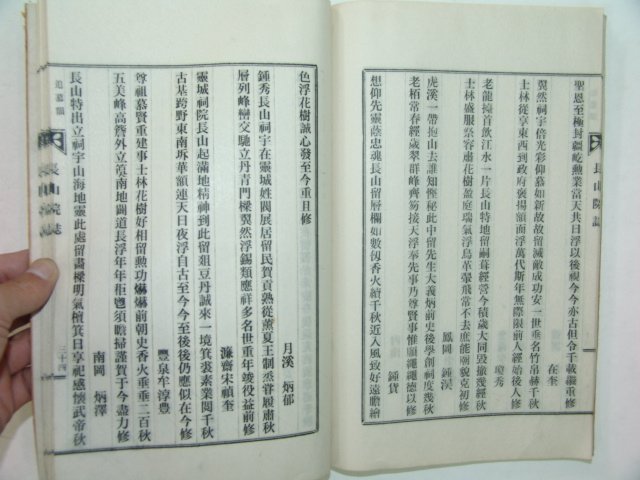 長山院誌
聖恩至極封疆屹勲業當天共日浮以後視今今亦古但令千載繼重修
在奎
翼然祠宇倍光彩仰慕如新故故留滅敵成功安一世垂名竹帛赫千秋
士林從享東西到政府褒揚額面浮萬代斯年無際限前人經始後人修
瓊秀
老龍掉首飲江水一片長山特地留嗣葺經營今積歲大同毁撤幾經秋
士林盛服祭容肅花樹盈庭瑞氣浮鳥革翬飛常不去庶能廟貌克初修
鳳岡 鍾漢
虎溪一帶抱山去誰知慳秘此中留先生大義炳前史後學創祠度幾秋
老栢常春經歲翠群峰峙笏接天浮奉先事乃尊賢事惟願繩繩德以修
鍾貨
想仰先靈蔭忠魂長山留層欄如數仭香火續千秋近入風致好遠瞻繪
色浮花樹誠心發至今重且修
月溪 炳郁
鍾秀長山祠宇在靈城姓閥展居留民賀貢熟從薰夏王制烝甞肅秋
層列峰巒交馳立丹靑門樑翼然浮錫類應祥多名世重年竣役益前修
濂齋宋禎奎
靈城祠院長山起滿地精神到此留俎豆丹誠來一境箕裘素業閱千秋
古基跨野東南坼華額連天日夜浮自古至今今至後後仍應似在今修
豐泉牟淳豊
尊祖慕賢重建事士林花樹好相留勲功爀爀前朝史香火垂垂二百秋
五美峰高簷外立眞南地闢道長浮年年秬鬯須瞻掃謹賀于今盡力修
南岡 炳澤
長山特出立祠宇山海地靈此處留畵樑明氣檀箕日享祀感懷武帝秋
追慕韻
長山院誌
三十四